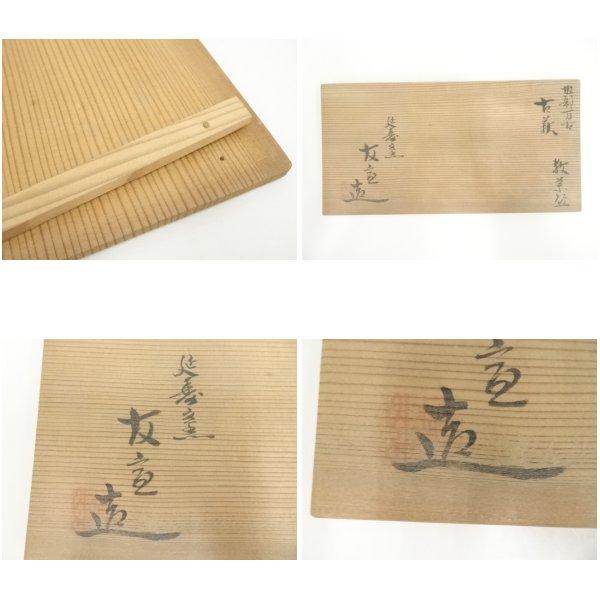 古萩 数茶碗
延寿窯
友宣造
延寿窯
友宣造
宣
造